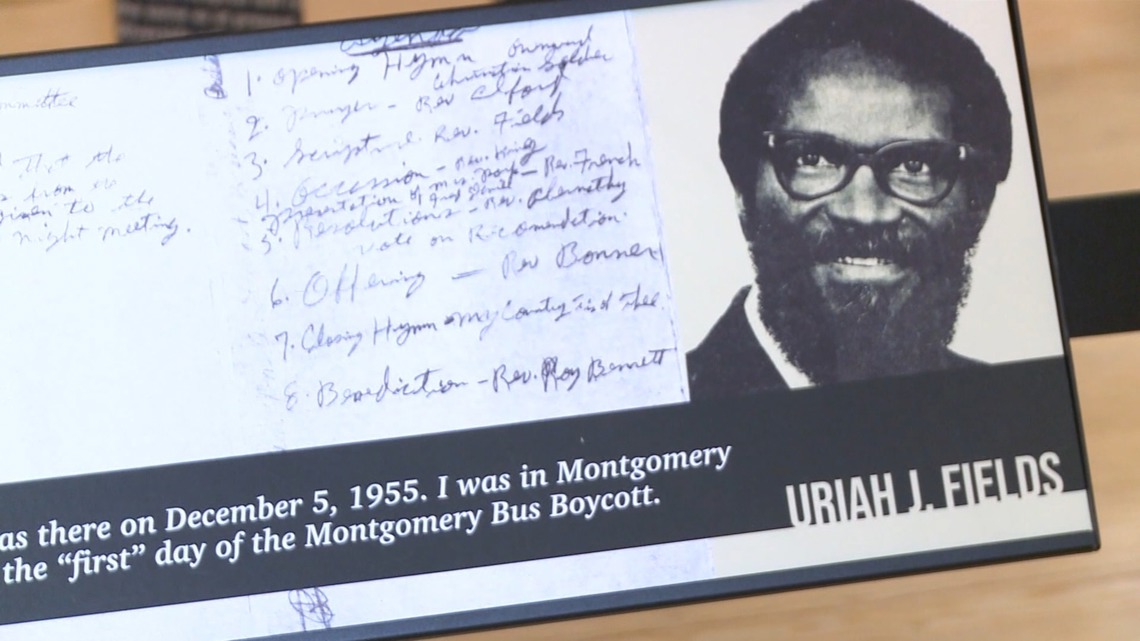 mmittee
that the
s from the
given to the
night meeting.
Agenda
1. Opening Hymn Onward
Christian Soldier
2. Prayer - Rev Alford
3. Scripture Rev. Fields
4. Occassion - Rev. King
presentation of Mrs. Parks - Rev. French
5. Resolutions - Rev. Abernathy
vote on Ricomendation.
6. Offering — Rev Bonner
7. Closing Hymn - My Country Tis of Thee.
8. Benediction - Rev. Roy Bennett
as there on December 5, 1955. I was in Montgomery
the “first” day of the Montgomery Bus Boycott.
URIAH J. FIELDS